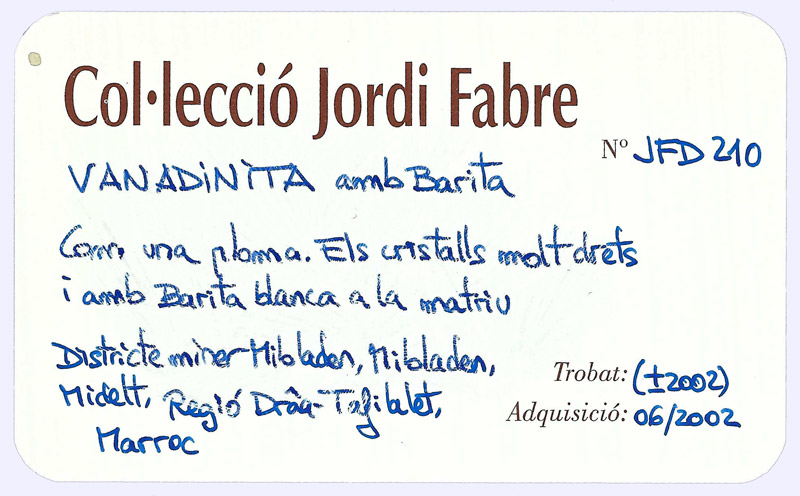 Col·lecció Jordi Fabre
Nº JFD 210
VANADINITA amb Barita
Com una ploma. Els cristalls molt drets
i amb Barita blanca a la matriu
Districte miner Mibladen, Mibladen,
Midelt, Regió Drâa-Tafilalet,
Marroc
Trobat: (±2002)
Adquisició: 06/2002